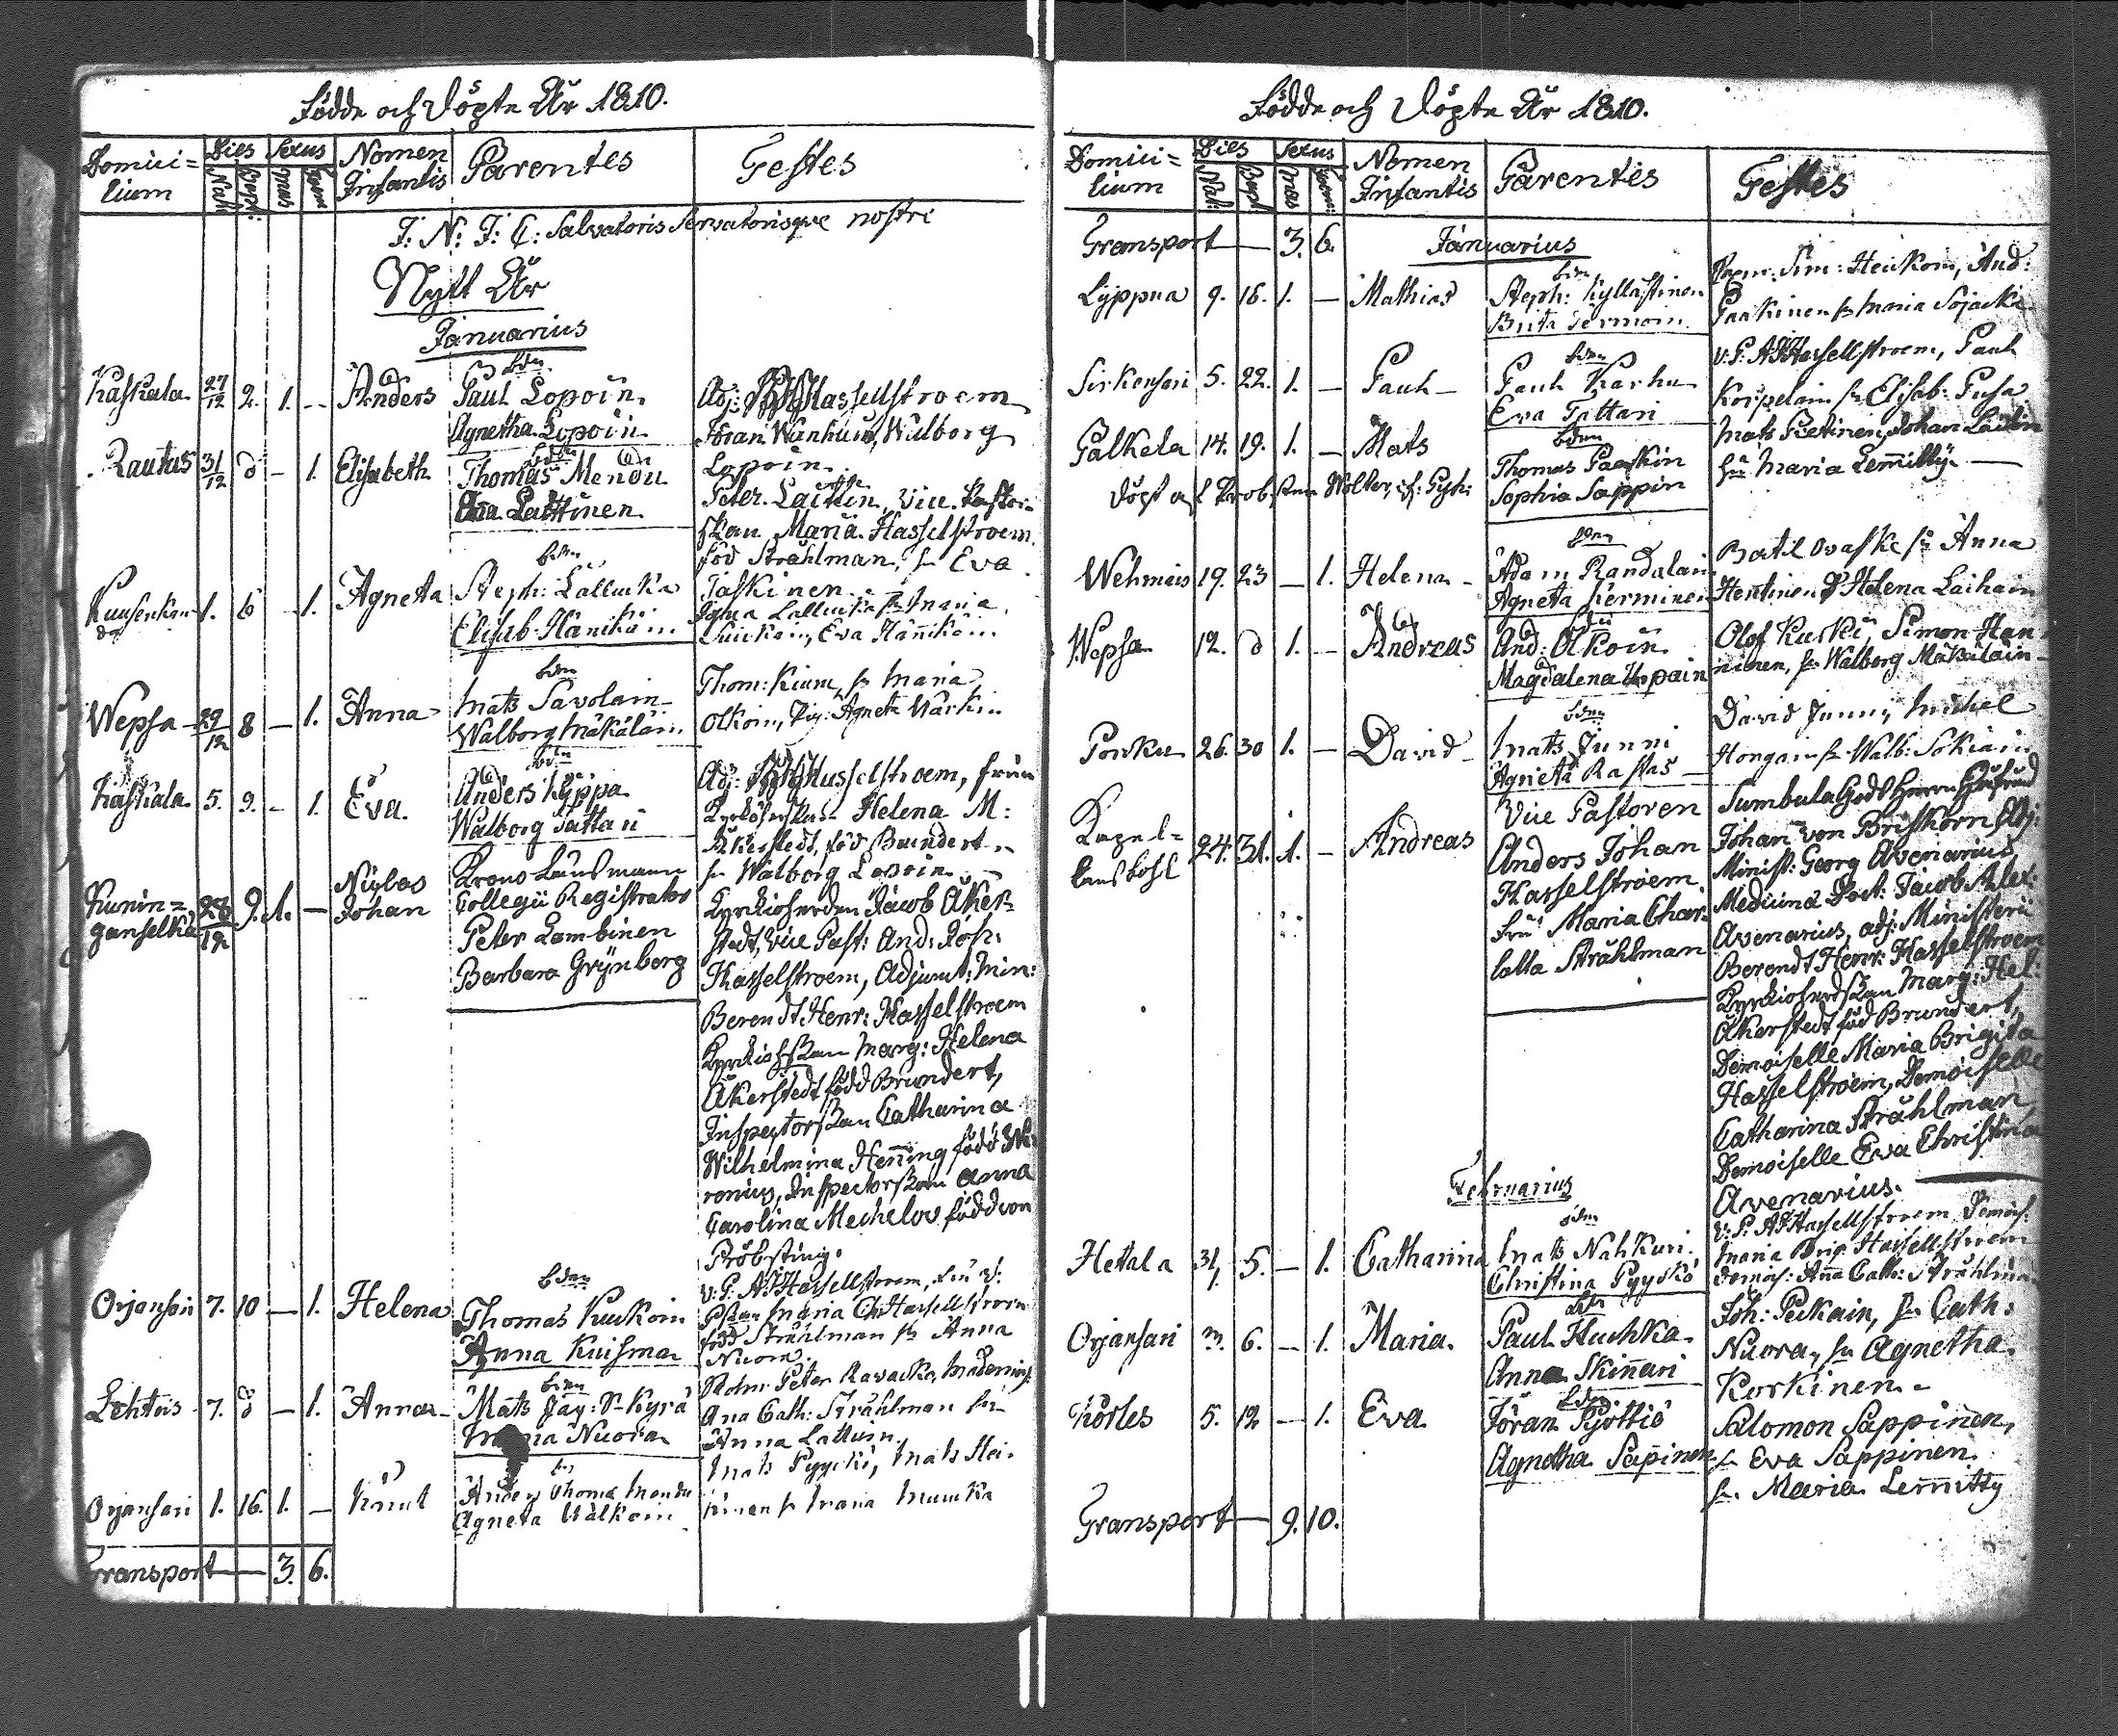 Födde och Döpte År 1810.
Domici=
lium
Dies
Nat:
Bapt:
Sexus
mas
foem:
Nomen
Infantis
Parentes
Testes
I: N: I: C: Salvatoris Servatorisque nostri
Nytt År
Januarius
Kaskala 27/12 2. 1. – Anders
bdn
Paul Lopoin
Agnetha Lopoin
Adj: Hasselstroem
Jöran Wanhain, Walborg
Lopoin
Rautus 31/12 d – 1. Elisabeth
Thomas Mendu
Eva Laittinen
Peter Laitin, Vice Pastor-
skan Maria Hasselstroem
föd Stråhlman, h. Eva
Taskinen
1. 6 1. Agneta
bdn
Steph: Lallucka
Elisab. Hänikäin
Lallucka h. Maria
Eva Hänikäin
Wepsa 29/12 8 – 1. Anna
bdn
Mats Savolain
Walborg Mäkäläin
Thom: Kiuru, h. Maria
Olkoin, Pig: Agneta Markin
Kaskala 5. 9. – 1. Eva.
bdn
Anders Kyppa
Walborg Tattari
Adj: Hasselstroem, fruu
Kyrkoherskan Helena M:
Åkerstedt, föd Brundert
h. Walborg Lopoin
Kunin=
ganselkä 28/12 9. 1. – Niclas
Johan
Krono Länsmann
Collegii Registrator
Peter Lambinen
Barbara Grynberg
Kyrkioherden Jacob Åker-
stedt, Vice Past: And: Joh:
Hasselstroem, Adjunct: Min:
Berendt Henr: Hasselstroem
Kyrkiohskan Marg: Helena
Åkerstedt född Brundert,
Inspectorskan Catharina
Wilhelmina Henning född
ronius, Inspectorskan Anna
Carolina Mechelov född von
Pröbsting.
Orjansari 7. 10 – 1. Helena
bdn
Thomas Kuckoin
Anna Kuisma
V: P: A J Hasselstroem, fru V:
Pskan Maria Ch: Hasselstroem
född Stråhlman h. Anna
Nuora.
Lehtois 7. d – 1. Anna
bdn
Mats Jag: Sn Kyrä
Maria Nuora
Peter Ravacka,
Ana Cath: Stråhlman h:
Anna Lattuin
Orjansari 1. 16. 1. – Knut
Anders Thoma Mendu
Agneta Wälkoin
Mats Pyyckö, Mats Hei-
kinen h Maria Mumcka
Transport – 3. 6.
Födde och Döpte År 1810.
Domici=
lium
Dies
Nat:
Bapt:
Sexus
mas
foem:
Nomen
Infantis
Parentes
Testes
Transport – 3. 6. Januarius
Lyppua 9. 16. 1. – Mathias
bdn
Steph: Kyllästinen
Brita Termoin
Sim: Heickoin, And:
Paakinen h Maria Sojacka
Sirkensari 5. 22. 1. – Paul
bdn
Paul Karhu
Eva Tattari
V: P: A J Hasselstroem, Paul
Korpelain h Elisab: Pusa
Palkela 14. 19. 1. – Mats
bdn
Thomas Paaskin
Sophia Sappin
Mats Pietinen, Johan Laitin
hu Maria Lemitty
Döpt af Probsten Wolter, i Pyh:
Wehmais 19. 23 – 1. Helena
bdn
Adam Randalain
Agneta Kerminen
Bertil Ovaska h Anna
Hentinen P Helena Laihain
Wepsa 12. d 1. – Andreas
And: Olkoin
Magdalena Urpain
Olof Kuski, Simon Han
ninen, h. Walborg Mäkäläin
Porku 26. 30 1. – David
bdn
Mats Junni
Agnieta Rastas
David Junni, Michel
Hongain h Walb: Sokiain
Kapel=
lans bohl 24. 31. 1. – Andreas
Vice Pastoren
Anders Johan
Hasselstroem.
fru Maria Char-
lotta Stråhlman
Sumbula Gods Herre
Johan von Briskorn Adj:
Minist: Georg Avenarius
Medicinä Doct: Jacob Alex:
Avenarius, adj: Ministerii
Berendt Henr: Hasselstroem
Kyrkioherdskan Marg: Hel:
Åkerstedt född Brundert,
Demoiselle Maria Brigita
Hasselstroem, Demoiselle
Catharina Stråhlman
Demoiselle Eva Christina
Avenarius.
Februarius
Hetala 31. 5. – 1. Catharina
bdn
Mats Nahkuri
Christina Pyyckö
V: P: A J Hasselstroem Demois:
Maria Brig: Hasselstroem
Demois: Anna Cath: Stråhlman
Orjansari 3. 6. – 1. Maria.
Paul Huchka
Anna Skinnari
Joh: Peckain, h. Cath:
Nuora, h Agnetha
Korkinen
Körles 5. 12 – 1. Eva
bdn
Jöran Pjöttiö
Agnetha Sapinen
Salomon Sappinen,
h Eva Sappinen
h. Maria Lemitty
Transport – 9. 10.